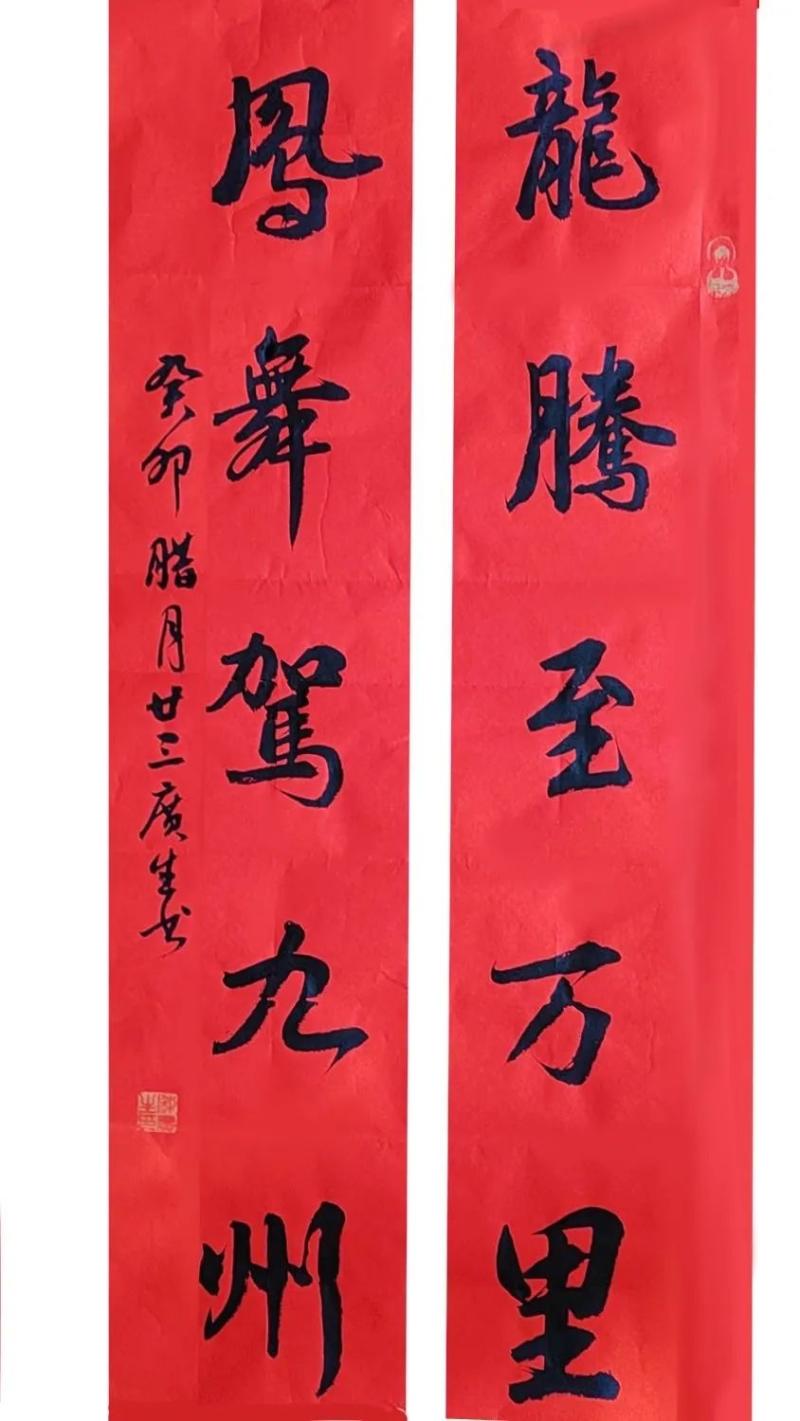 龍騰至万里
鳳舞駕九州
癸卯腊月廿三廣生书